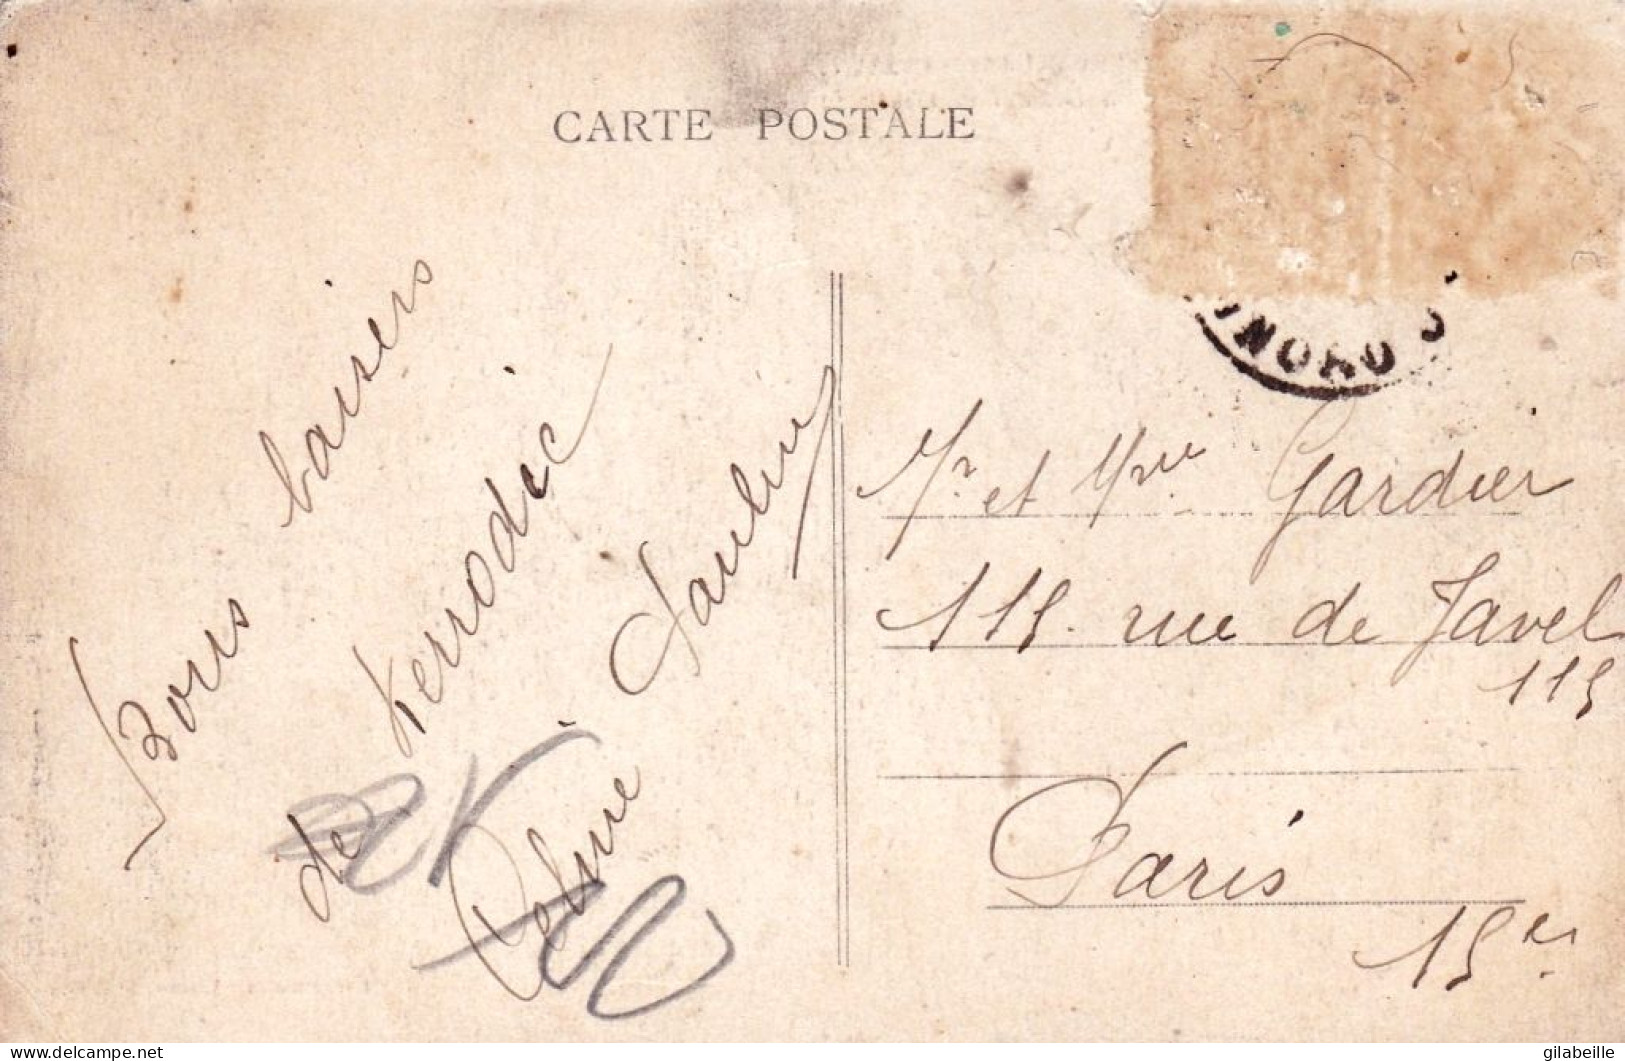 CARTE POSTALE
Bons baisers
de Kerrodic
Mr et Mme Gardier
115 rue de Javel
115
Paris
15es
www.delcampe.net
gilabeille